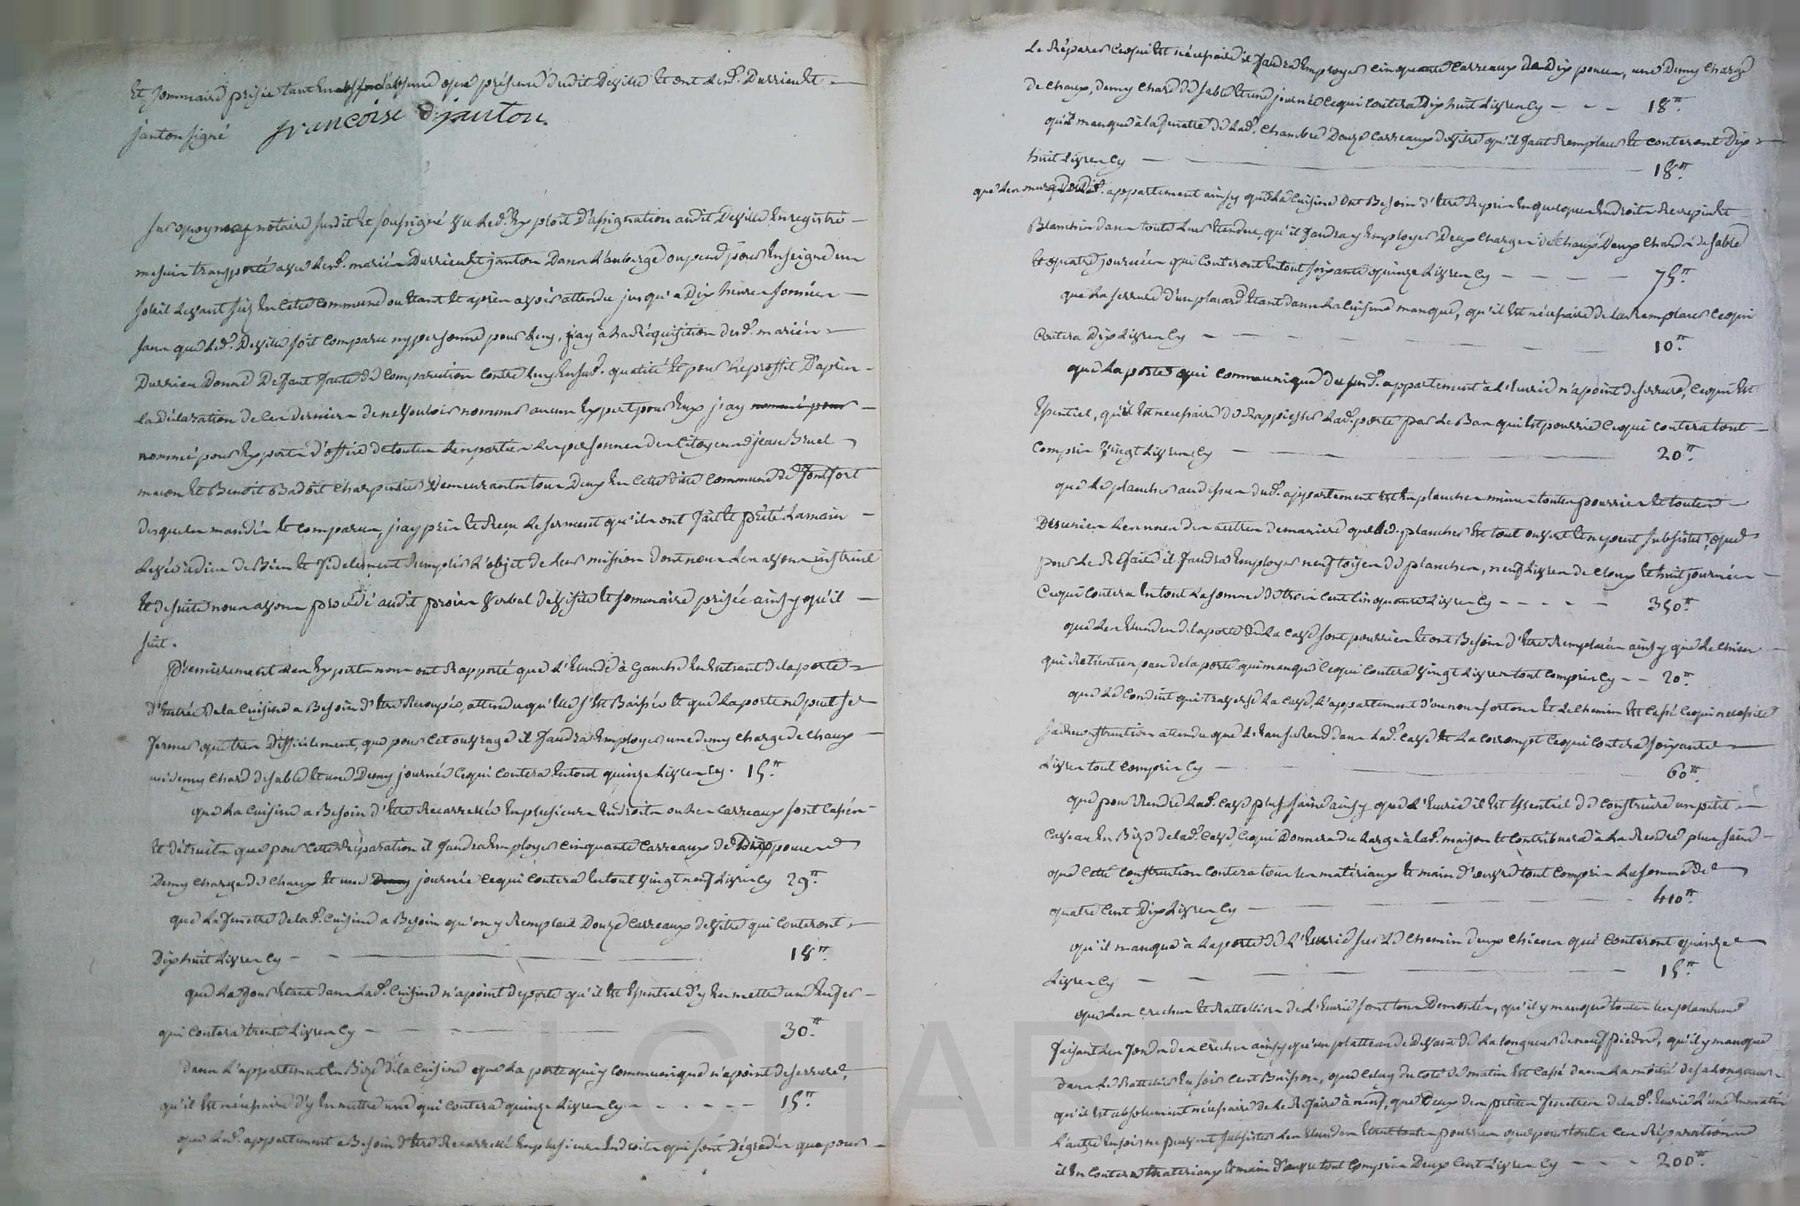 Et sommaire prisée tant en absence que présence dudit Deville et ont led. Durrieu et
janton signé françoise d'janton.
Sur quoy moy notaire susdit et soussigné vu led. Exploit d'assignation audit Deville Enregistré
me suis transporté avec lesd. mariés Durrieu et janton Dans L'auberge ou pend pour Enseigne un
soleil Levant sise En Cette Commune ou étant et après avoir attendu jusqu'a Dix heures sonnées
sans que led. Deville soit comparu ny personne pour luy, j'ay à La Réquisition desd. mariés
Durrieu Donné Defaut faute de Comparution contre luy En sad. qualité Et pour Le proffit D'après
La déclaration de Ces derniers de ne vouloir nommer aucun Expert pour Eux j'ay nommé pour
nommé pour Experts d'office de toutes Les parties Les personnes des Citoyens jean Bruel
maçon Et Benoit Badoit Charpentier Demeurants tous Deux En Cette dite Commune de Fontfort
Lesquels mandés Et Comparus, j'ay pris Et Reçu Le serment qu'ils ont fait Et prêté La main
Levée à dieu de Bien Et fidelement Remplir L'objet de Leur mission dont nous Les avons instruit
Et de suite nous avons procédé audit procès Verbal de Visite Et sommaire prisée ainsy qu'il
suit.
Premierement Les Experts nous ont Rapporté que L'Etundé à Gauche En Entrant de la porte
d'Entrée de la Cuisine a Besoin d'être Recoupée, attendu qu'elle s'est Baissée Et que La porte ne peut se
fermer que très Difficilement, que pour Cet ouvrage il faudra Employer une demy charge de chaux
un demy Chard de sable Et une Demy journée Ce qui Coutera En tout quinze Livres Cy. 15.tt
que La Cuisine a Besoin d'être Recarrelée En plusieurs Endroits ou Les Carreaux sont Cassés
Et détruits que pour Cette Réparation il faudra Employer Cinquante Carreaux de Dix pouces
Demy Charge de Chaux Et une Demy journée Ce qui Coutera En tout Vingt neuf Livres Cy 29.tt
que La fenetre de lad. Cuisine a Besoin qu'on y Remplace Douze Carreaux de Vitre qui Couteront
Dix huit Livres Cy — 18.tt
que La Etant dans Lad. Cuisine n'a point de porte qu'il Est Essentiel d'y En mettre une En fer
qui Coutera trente Livres Cy — 30.tt
Dans L'appartement En Bize de la Cuisine que La porte qui y Communique n'a point de serrure,
qu'il Est nécessaire d'y En mettre une qui Coutera quinze Livres Cy — 15.tt
que Led. appartement a Besoin d'être Recarrelé En plusieurs Endroits qui sont Dégradés que pour
Le Réparer Ce qui Est nécessaire il faudra Employer Cinquante Carreaux de Dix pouces, une Demy Charge
de Chaux, demy Chard de sable Et une journée Ce qui Coutera Dix huit Livres Cy — 18.tt
qu'il manque à La fenetre de Lad. Chambre Douze Carreaux de Vitre qu'il faut Remplacer Et Couteront Dix
huit Livres Cy — 18.tt
que Les murs Dud. appartement ainsy que de La Cuisine Ont Besoin d'être Repris En quelques Endroits Recrepis Et
Blanchis dans toute Leur Etendue, qu'il faudra y Employer Deux Charges de Chaux Deux Chards de sable
Et quatre journées qui Couteront En tout soixante quinze Livres Cy — 75.tt
que La serrure d'un placard Etant dans La Cuisine manque, qu'il Est nécessaire de La Remplacer Ce qui
Coutera Dix Livres Cy — 10.tt
que La porte qui Communique du sud. appartement à L'Eurie n'a point de serrure, Ce qui Est
Essentiel, qu'il Est necessaire de Rappiesser Lad. porte par Le Bas qui Est pourrie Ce qui Coutera tout
Compris Vingt Livres Cy — 20.tt
que Le plancher au dessus dud. appartement Est En planches minces toutes pourries Et toutes
Desunies Les unes des autres de maniere que Led. plancher Est tout ouvert Et ne peut subsister, que
pour Le Refaire il faudra Employer neuf toizes de planches, neuf Livres de Cloux Et huit journées
Ce qui Coutera En tout La somme de trois Cent Cinquante Livres Cy — 350.tt
que Les Etundes de la porte de La Cave sont pourries Et ont Besoin d'être Remplacées ainsy que Le
qui de la porte qui manque Ce qui Coutera Vingt Livres tout Compris Cy — 20.tt
que Le Conduit qui traverse La Cave, L'appartement d'ou nous sortons Et Le Chemin Est Cassé Ce qui necessite
sa Reconstruction atendu que L'eau se Rend dans Lad. Cave Et La Corrompt Ce qui Coutera soixante
Livres tout Compris Cy — 60.tt
que pour Rendre Lad. Cave plus saine ainsy que L'Eurie il Est Essentiel de Construire un petit
Caveau En Bize de lad. Cave Ce qui Donnera du Large à Lad. maison Et Contribuera à La Rendre plus saine
que Cette Construction Coutera tous Les matériaux Et main d'œuvre tout Compris La somme de
quatre Cent Dix Livres Cy — 410.tt
qu'il manque à La porte de L'Eurie sur Le Chemin deux qui Couteront quinze
Livres Cy — 15.tt
que Les Creches Et Rattelliers de L'Eurie sont tous Demontés, qu'il y manque toutes Les planches
faisant Les fonds des Creches ainsy qu'un platteau de devant de La Longueur de neuf pieds, qu'il y manque
dans Le Rattelier En soir Cent Buissons, que Celuy du Coté de matin Est Cassé dans La moitié de sa Longueur
qu'il Est absolument nécessaire de Le Refaire à neuf, que Deux des petites fenetres de Lad. Eurie L'une En matin
L'autre En soir ne peuvent subsister Les Etundes Etant toutes pourries que pour toutes Ces Réparations
il En Coutera materiaux Et main d'œuvre tout Compris Deux Cent Livres Cy — 200.tt